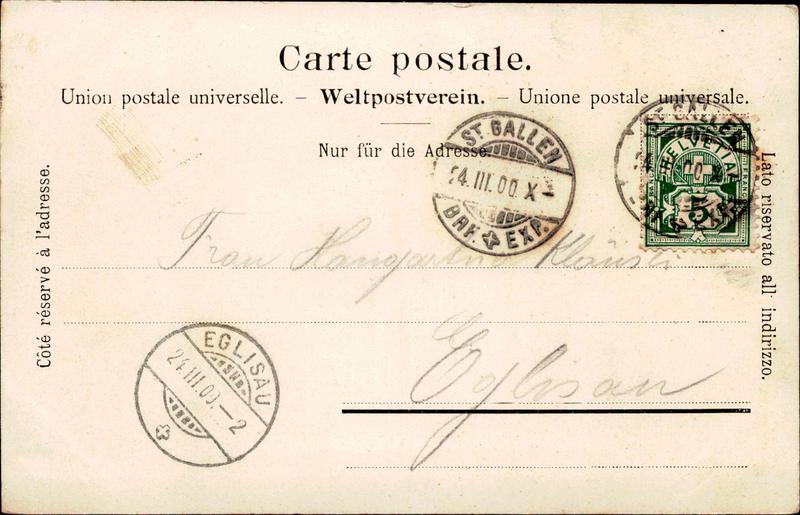 Carte postale.
Union postale universelle. – Weltpostverein. – Unione postale universale.
Nur für die Adresse.
Côté réservé à l'adresse.
Lato riservato all' indirizzo.
ST. GALLEN
24.III.00. X –
BRF. EXP.
ST. GALLEN
HELVETIA
FRANCO
5
Frau Hangartner
Eglisau
EGLISAU
24.III.00. – 2